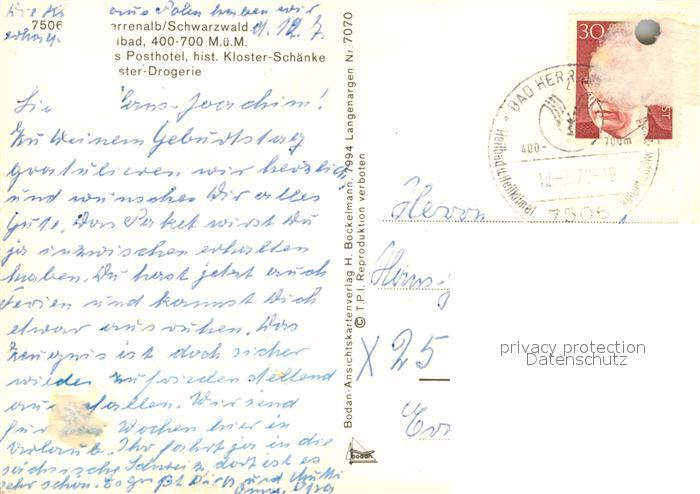 Die aus Köln haben wir
erhalt. d. 12.7.
7506 errenalb/Schwarzwald
ibad, 400-700 M.ü.M.
s Posthotel, hist. Kloster-Schänke
ster-Drogerie
Hans-Joachim!
Zu Deinem Geburtstag
gratulieren wir herzlich
und wünschen Dir alles
Gute. Das Paket wirst Du
ja inzwischen erhalten
haben. Du hast jetzt auch
Ferien und kannst Dich
etwas ausruhen. Das
Zeugnis ist doch sicher
wieder zufriedenstellend
ausgefallen. Wir sind
für Wochen hier in
Urlaub. Ihr fahrt ja in die
sächsische Schweiz, dort ist es
sehr schön. Es grüßt Dich und Mutti
Oma Opa
Bodan-Ansichtskartenverlag H. Bockelmann, 7994 Langenargen Nr. 7070
© T.P.I. Reproduktion verboten
bodan
30
BAD HERR
400- 700m
Heilbad u. Heilklimat.
12.-7.72-18
7506
Herrn
Hans-
X 25
privacy protection
Datenschutz